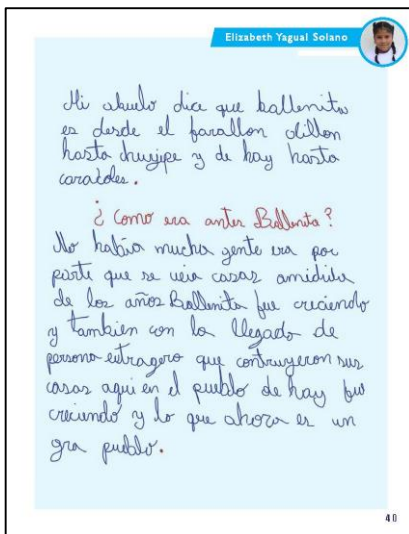 Elizabeth Yagual Solano
Mi abuelo dice que ballenita
es desde el farallon dillon
hasta chuyipe y de hay hasta
caracoles.
¿ como era antes Ballenita ?
No había mucha gente era por
parte que se veia casas amidida
de los años Ballenita fue creciendo
y tambien con la llegada de
persona extragero que contruyeron sus
casas aqui en el pueblo de hay fue
creciendo y lo que ahora es un
gra pueblo.
40